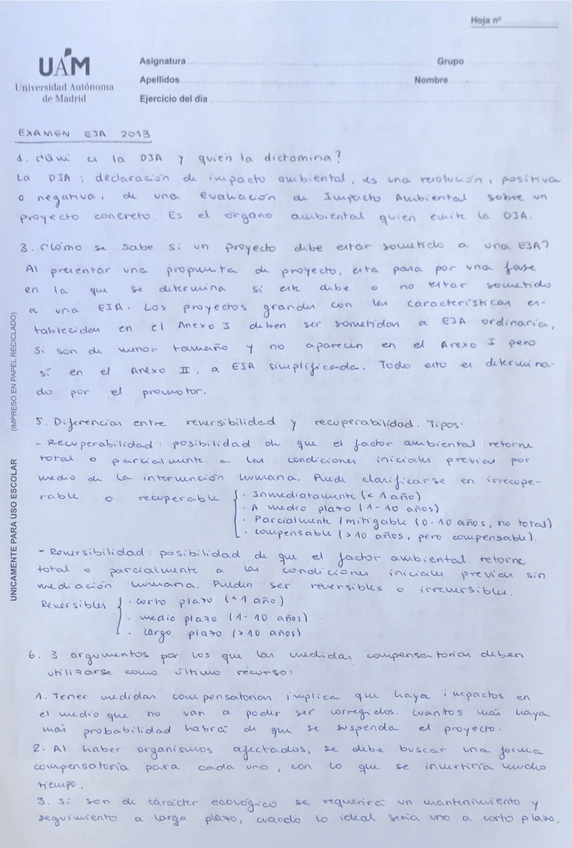 Hoja nº
UAM
Universidad Autónoma
de Madrid
Asignatura
Grupo
Apellidos
Nombre
Ejercicio del día
EXAMEN EIA 2013
1. ¿Qué es la DIA y quien la dictamina?
La DIA; declaración de impacto ambiental, es una resolución, positiva
o negativa, de una Evaluación de Impacto Ambiental sobre un
proyecto concreto. Es el órgano ambiental quien emite la DIA.
3. ¿Cómo se sabe si un proyecto debe estar sometido a una EIA?
Al presentar una propuesta de proyecto, esta pasa por una fase
en la que se determina si este debe o no estar sometido
a una EIA. Los proyectos grandes con las características es-
tablecidas en el Anexo I deben ser sometidos a EIA ordinaria,
si son de menor tamaño y no aparecen en el Anexo I pero
sí en el Anexo II, a EIA simplificada. Todo esto es determina-
do por el promotor.
5. Diferencias entre reversibilidad y recuperabilidad. Tipos:
- Recuperabilidad: posibilidad de que el factor ambiental retorne
total o parcialmente a las condiciones iniciales previas por
medio de la intervención humana. Puede clasificarse en irrecupe-
rable o recuperable
· Inmediatamente (< 1 año)
· A medio plazo (1-10 años)
· Parcialmente / mitigable (0-10 años, no total)
· compensable (>10 años, pero compensable).
- Reversibilidad: posibilidad de que el factor ambiental retorne
total o parcialmente a las condiciones iniciales previas sin
mediación humana. Pueden ser reversibles o irreversibles.
Reversibles
· corto plazo (<1 año)
· medio plazo (1-10 años)
· largo plazo (>10 años)
6. 3 argumentos por los que las medidas compensatorias deben
utilizarse como último recurso:
1. Tener medidas compensatorias implica que haya impactos en
el medio que no van a poder ser corregidos. cuantos más haya
más probabilidad habrá de que se suspenda el proyecto.
2. Al haber organismos afectados, se debe buscar una forma
compensatoria para cada uno, con lo que se invertiría mucho
tiempo.
3. Si son de carácter ecológico se requerirá un mantenimiento y
seguimiento a largo plazo, cuando lo ideal sería uno a corto plazo.
UNICAMENTE PARA USO ESCOLAR
(IMPRESO EN PAPEL RECICLADO)